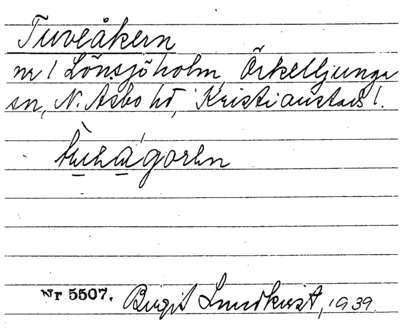 Tuveåkern
nr 1 Lönsjöholm, Örkelljunga
sn, N. Åsbo hd, Kristianstads l.
Nr 5507. Birgit Lundkvist, 1939.